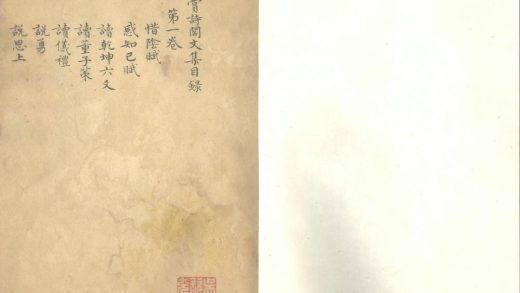 賞詩閣文集目錄
第一卷
惜陰賦
感知己賦
讀乾坤六爻
讀童子策
讀儀禮
說勇
說思上